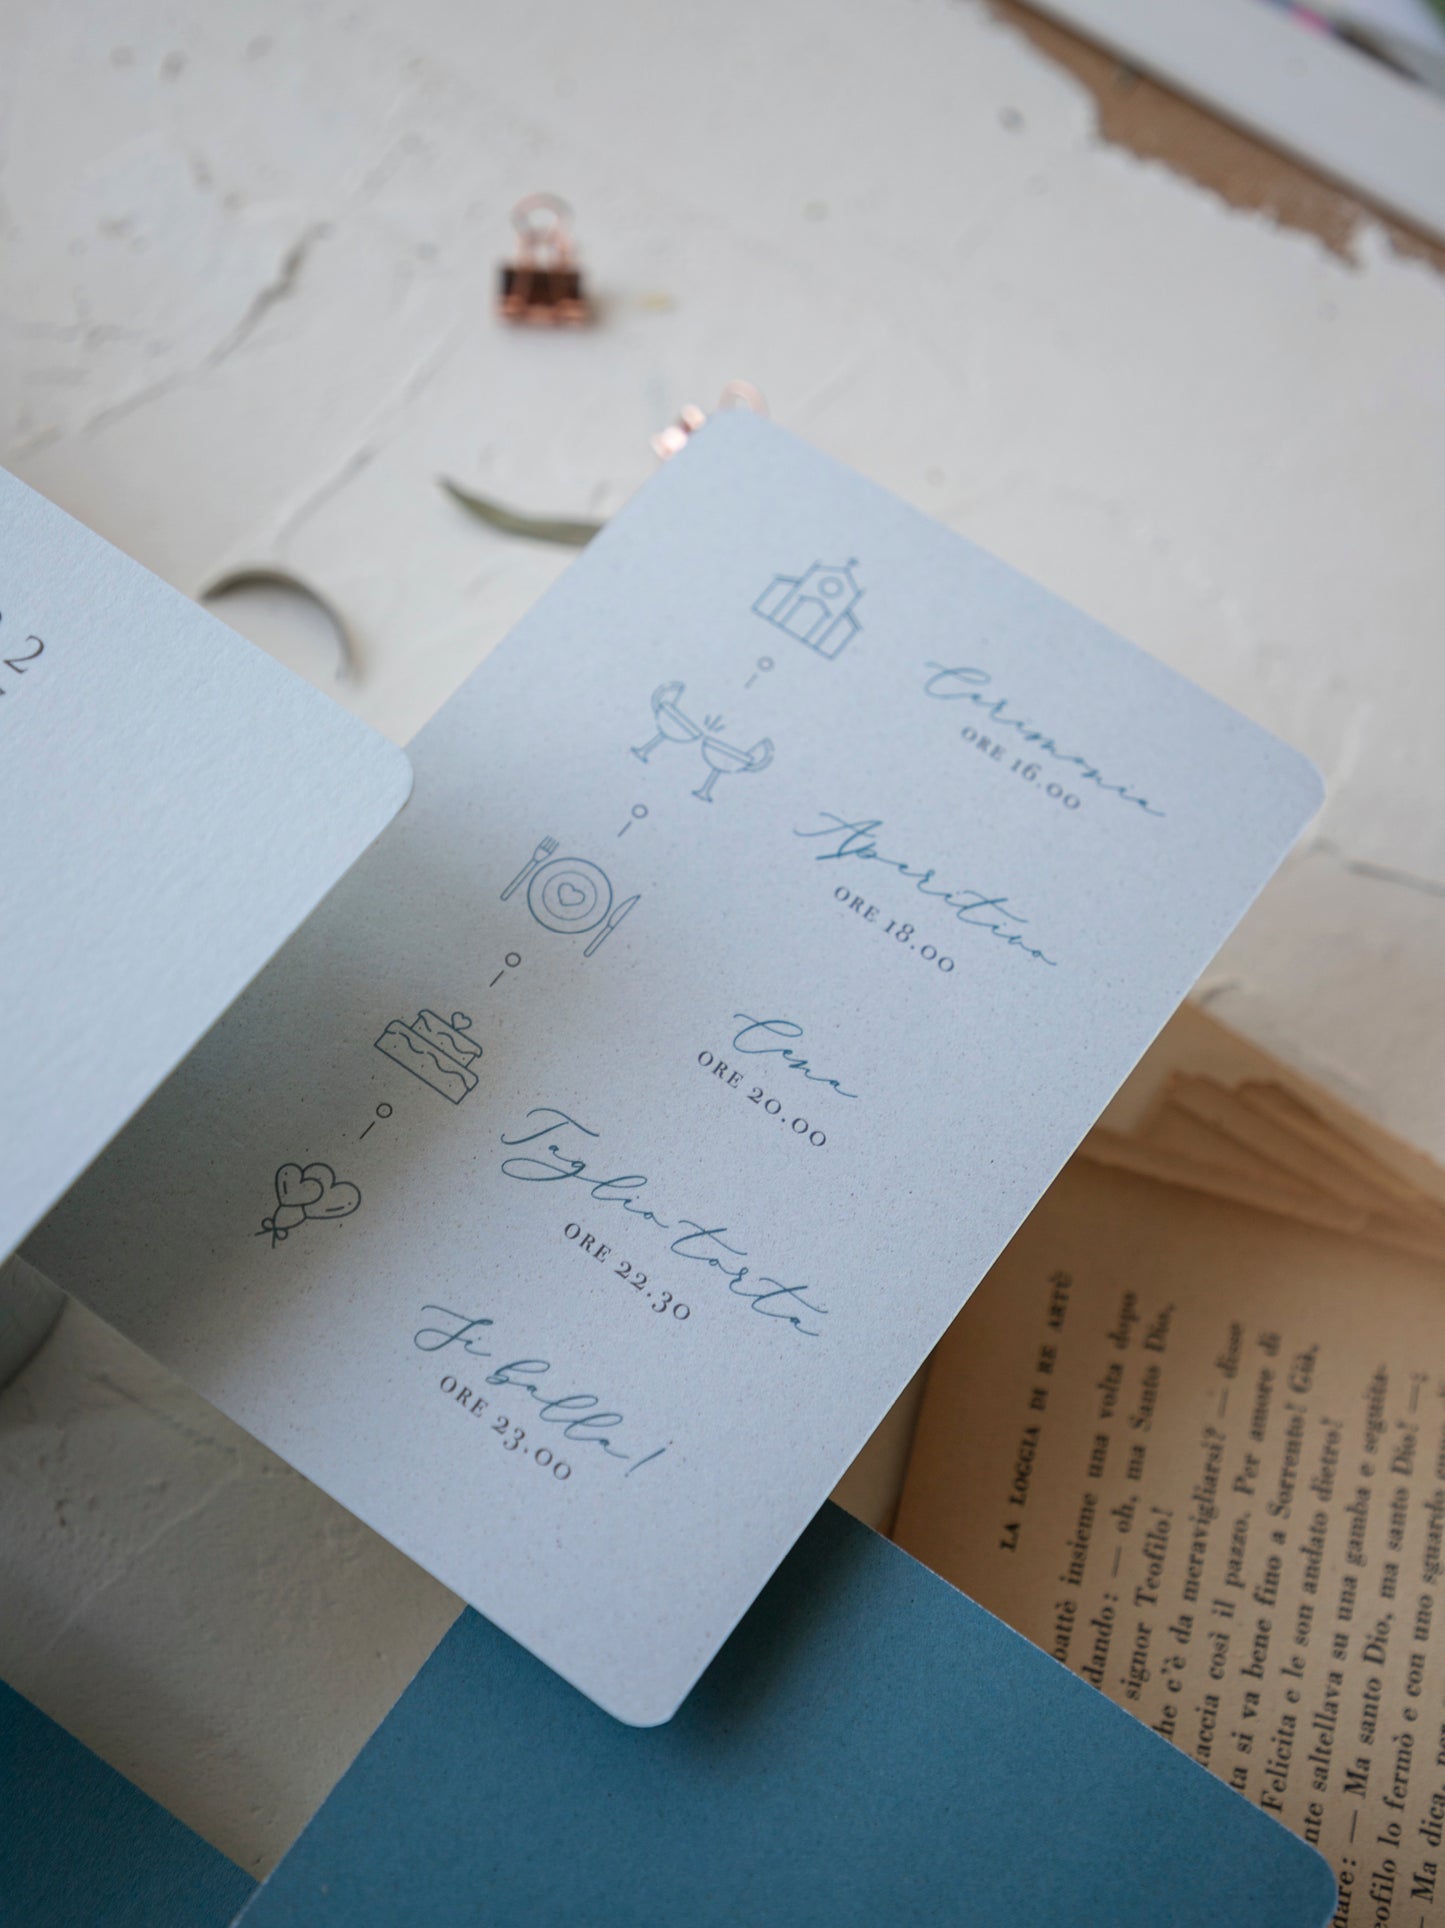 2
Cerimonia
ORE 16.00
Aperitivo
ORE 18.00
Cena
ORE 20.00
Taglio torta
ORE 22.30
Si balla!
ORE 23.00
LA LOGGIA DI RE ARTÙ
battè insieme una volta dopo
dando: — oh, ma Santo Dio,
signor Teofilo!
he c'è da meravigliarsi? — disse
faccia così il pazzo. Per amore di
ta si va bene fino a Sorrento! Già,
Felicita e le son andato dietro!
nte saltellava su una gamba e seguita-
dare: — Ma santo Dio, ma santo Dio! —;
ofilo lo fermò e con uno sguardo
— Ma dica, per